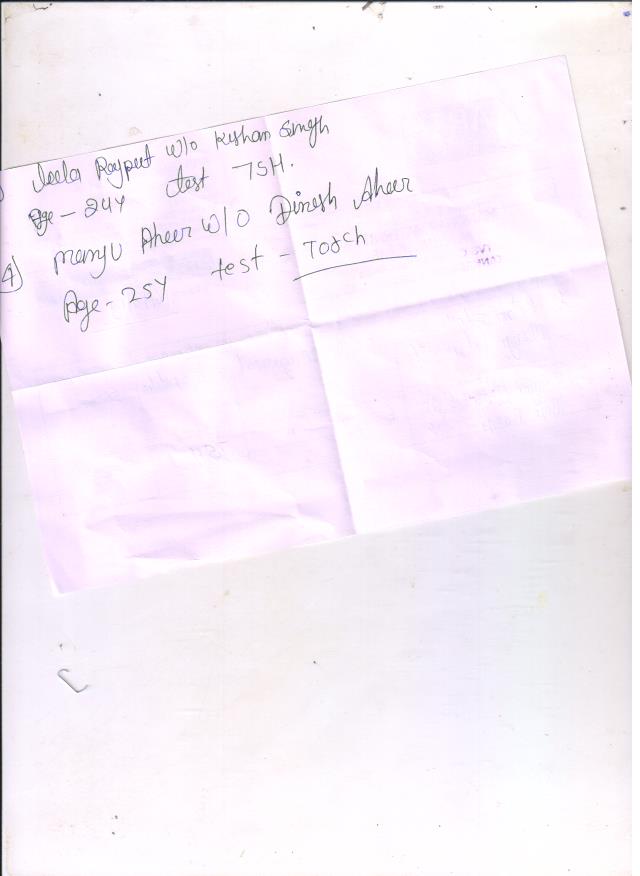 Leela Rajput W/o Kishan Singh
Age - 24Y test TSH.
4) Manju Aheer W/O Dinesh Aheer
Age - 25Y test - Torch